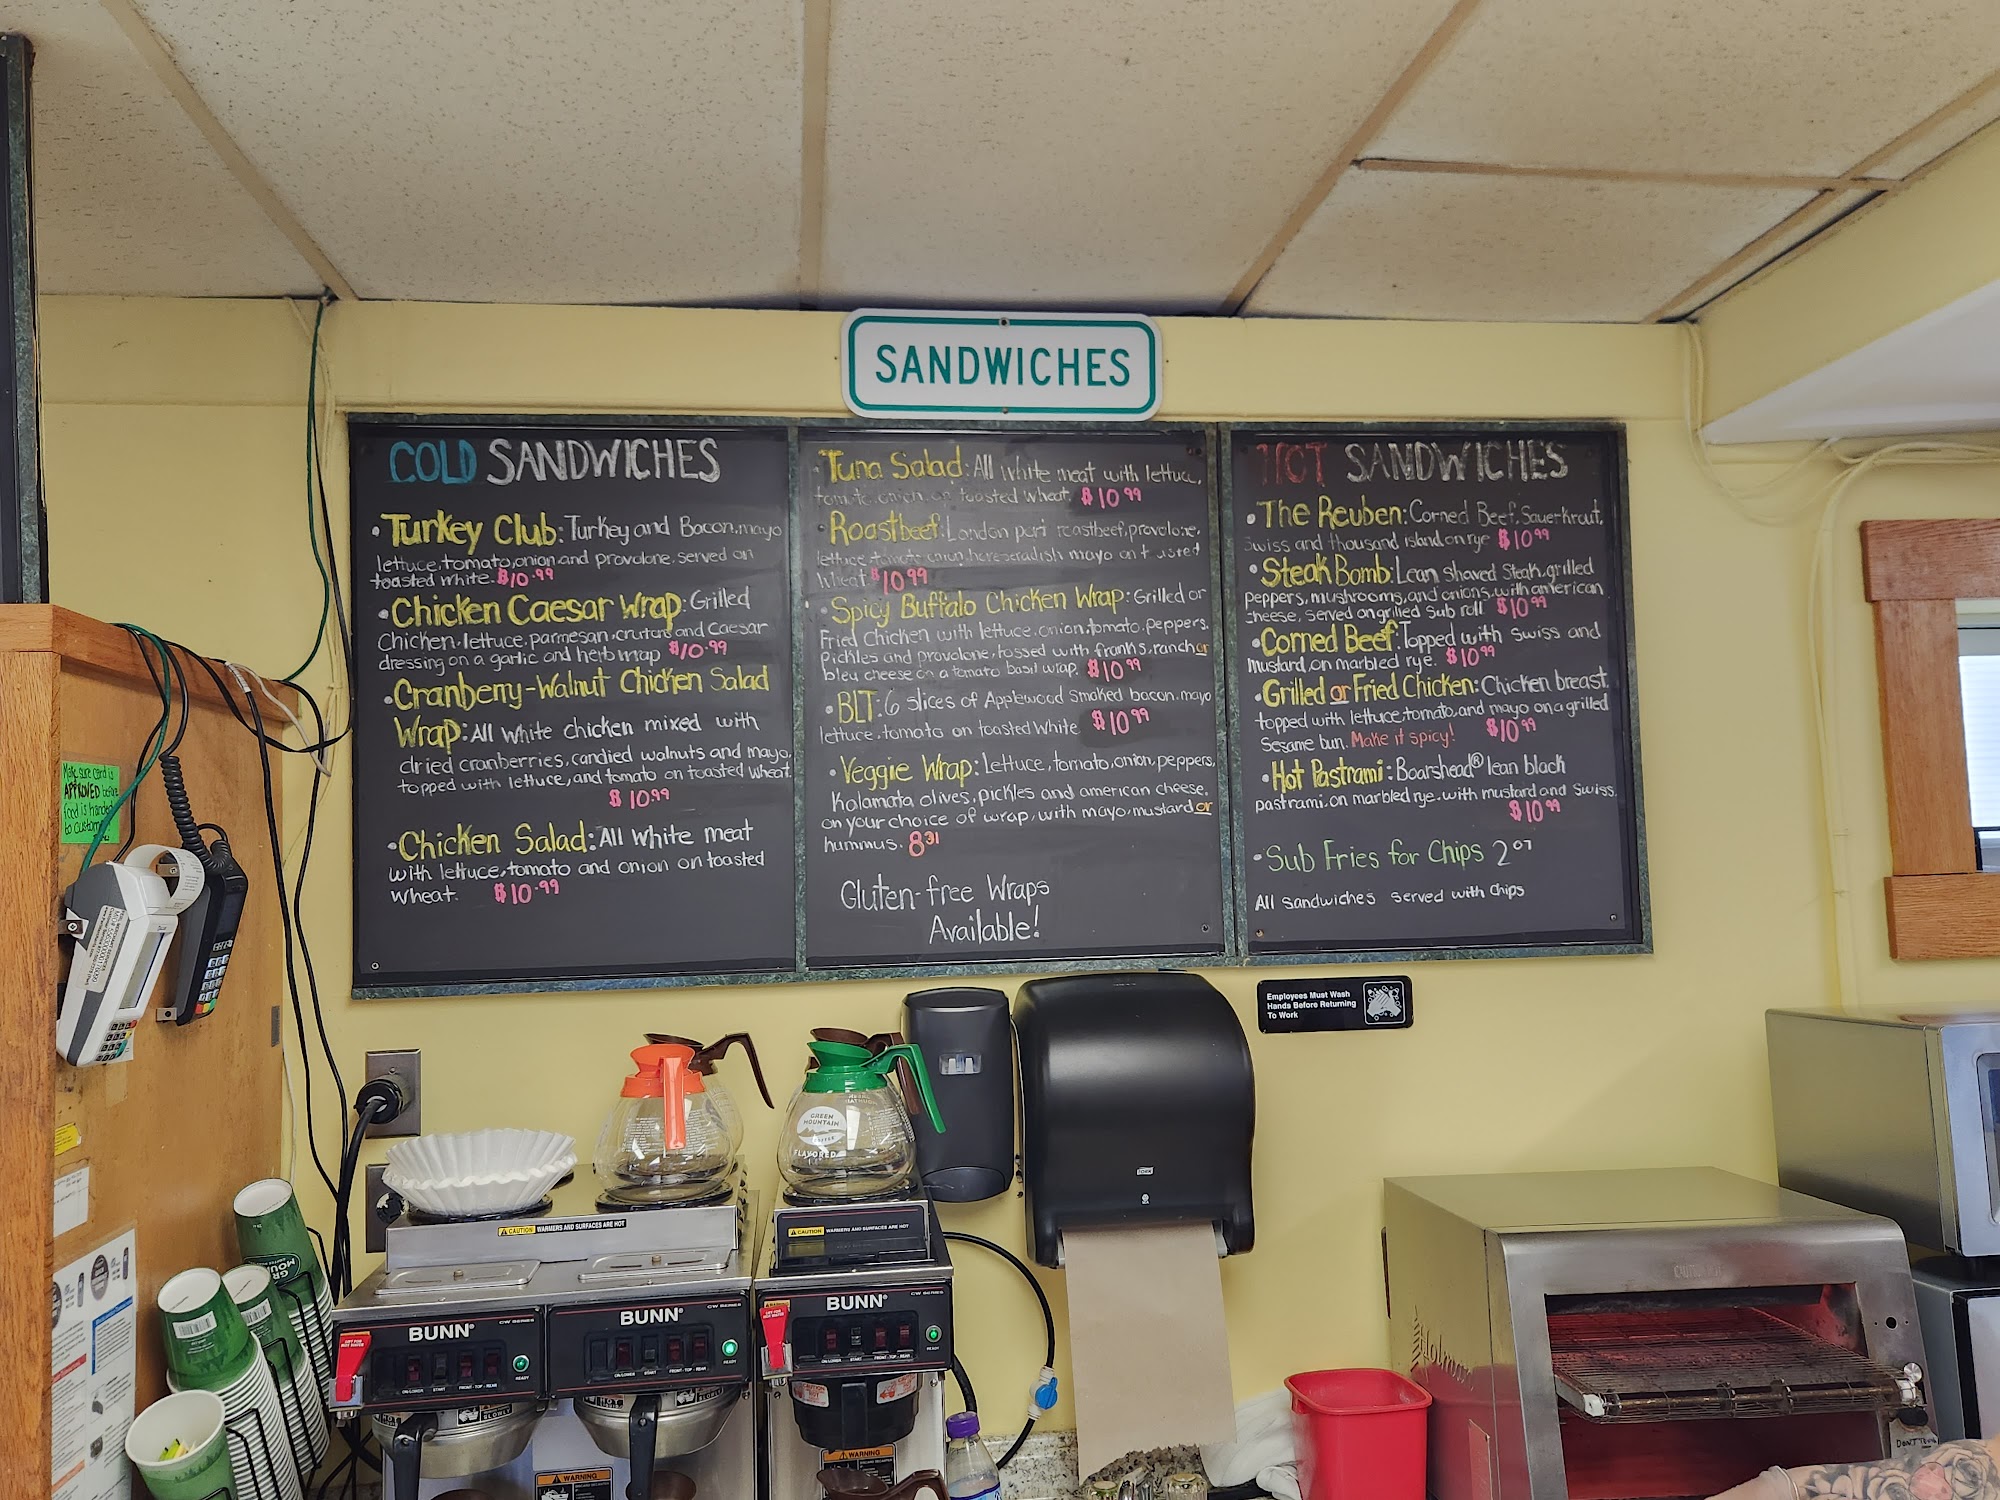 SANDWICHES
COLD SANDWICHES
• Turkey Club: Turkey and Bacon, mayo
lettuce, tomato, onion and provolone, served on
toasted white. $10.99
• Chicken Caesar Wrap: Grilled
Chicken, lettuce, parmesan, crutons and Caesar
dressing on a garlic and herb wrap $10.99
• Cranberry-Walnut Chicken Salad
Wrap: All white chicken mixed with
dried cranberries, candied walnuts and mayo,
topped with lettuce, and tomato on toasted wheat.
$10.99
• Chicken Salad: All white meat
with lettuce, tomato and onion on toasted
wheat. $10.99
• Tuna Salad: All white meat with lettuce,
tomato, onion, on toasted wheat. $10.99
• Roastbeef: London port roastbeef, provolone,
lettuce, tomato, onion, horseradish mayo on toasted
wheat $10.99
• Spicy Buffalo Chicken Wrap: Grilled or
Fried Chicken with lettuce, onion, tomato, peppers,
Pickles and provolone, tossed with franks, ranch or
bleu cheese on a tomato basil wrap. $10.99
• BLT: 6 slices of Applewood Smoked bacon, mayo
lettuce, tomato on toasted white $10.99
• Veggie Wrap: Lettuce, tomato, onion, peppers,
Kalamata olives, pickles and american cheese.
on your choice of wrap, with mayo, mustard or
hummus. 8.31
Gluten-free Wraps
Available!
HOT SANDWICHES
• The Reuben: Corned Beef, Sauerkraut,
Swiss and thousand island on rye $10.99
• Steak Bomb: Lean shaved Steak, grilled
peppers, mushrooms, and onions, with american
cheese, served on grilled sub roll $10.99
• Corned Beef: Topped with swiss and
mustard, on marbled rye. $10.99
• Grilled or Fried Chicken: Chicken breast,
topped with lettuce, tomato, and mayo on a grilled
Sesame bun. Make it spicy! $10.99
• Hot Pastrami: Boarshead® lean black
pastrami, on marbled rye, with mustard and Swiss.
$10.99
• Sub Fries for Chips 2.07
All sandwiches served with chips
Employees Must Wash
Hands Before Returning
To Work
Make sure card is
APPROVED before
food is handed
to customer
GREEN
MOUNTAIN
COFFEE
FLAVORED
CAUTION WARMERS AND SURFACES ARE HOT
CAUTION WARMERS AND SURFACES ARE HOT
BUNN® CW SERIES
BUNN® CW SERIES
BUNN® CW SERIES
ON/LOWER START FRONT - TOP - REAR READY
ON/LOWER START FRONT - TOP - REAR READY
ON/LOWER START FRONT - TOP - REAR READY
WARNING
WARNING
Holman
DON'T TOUCH